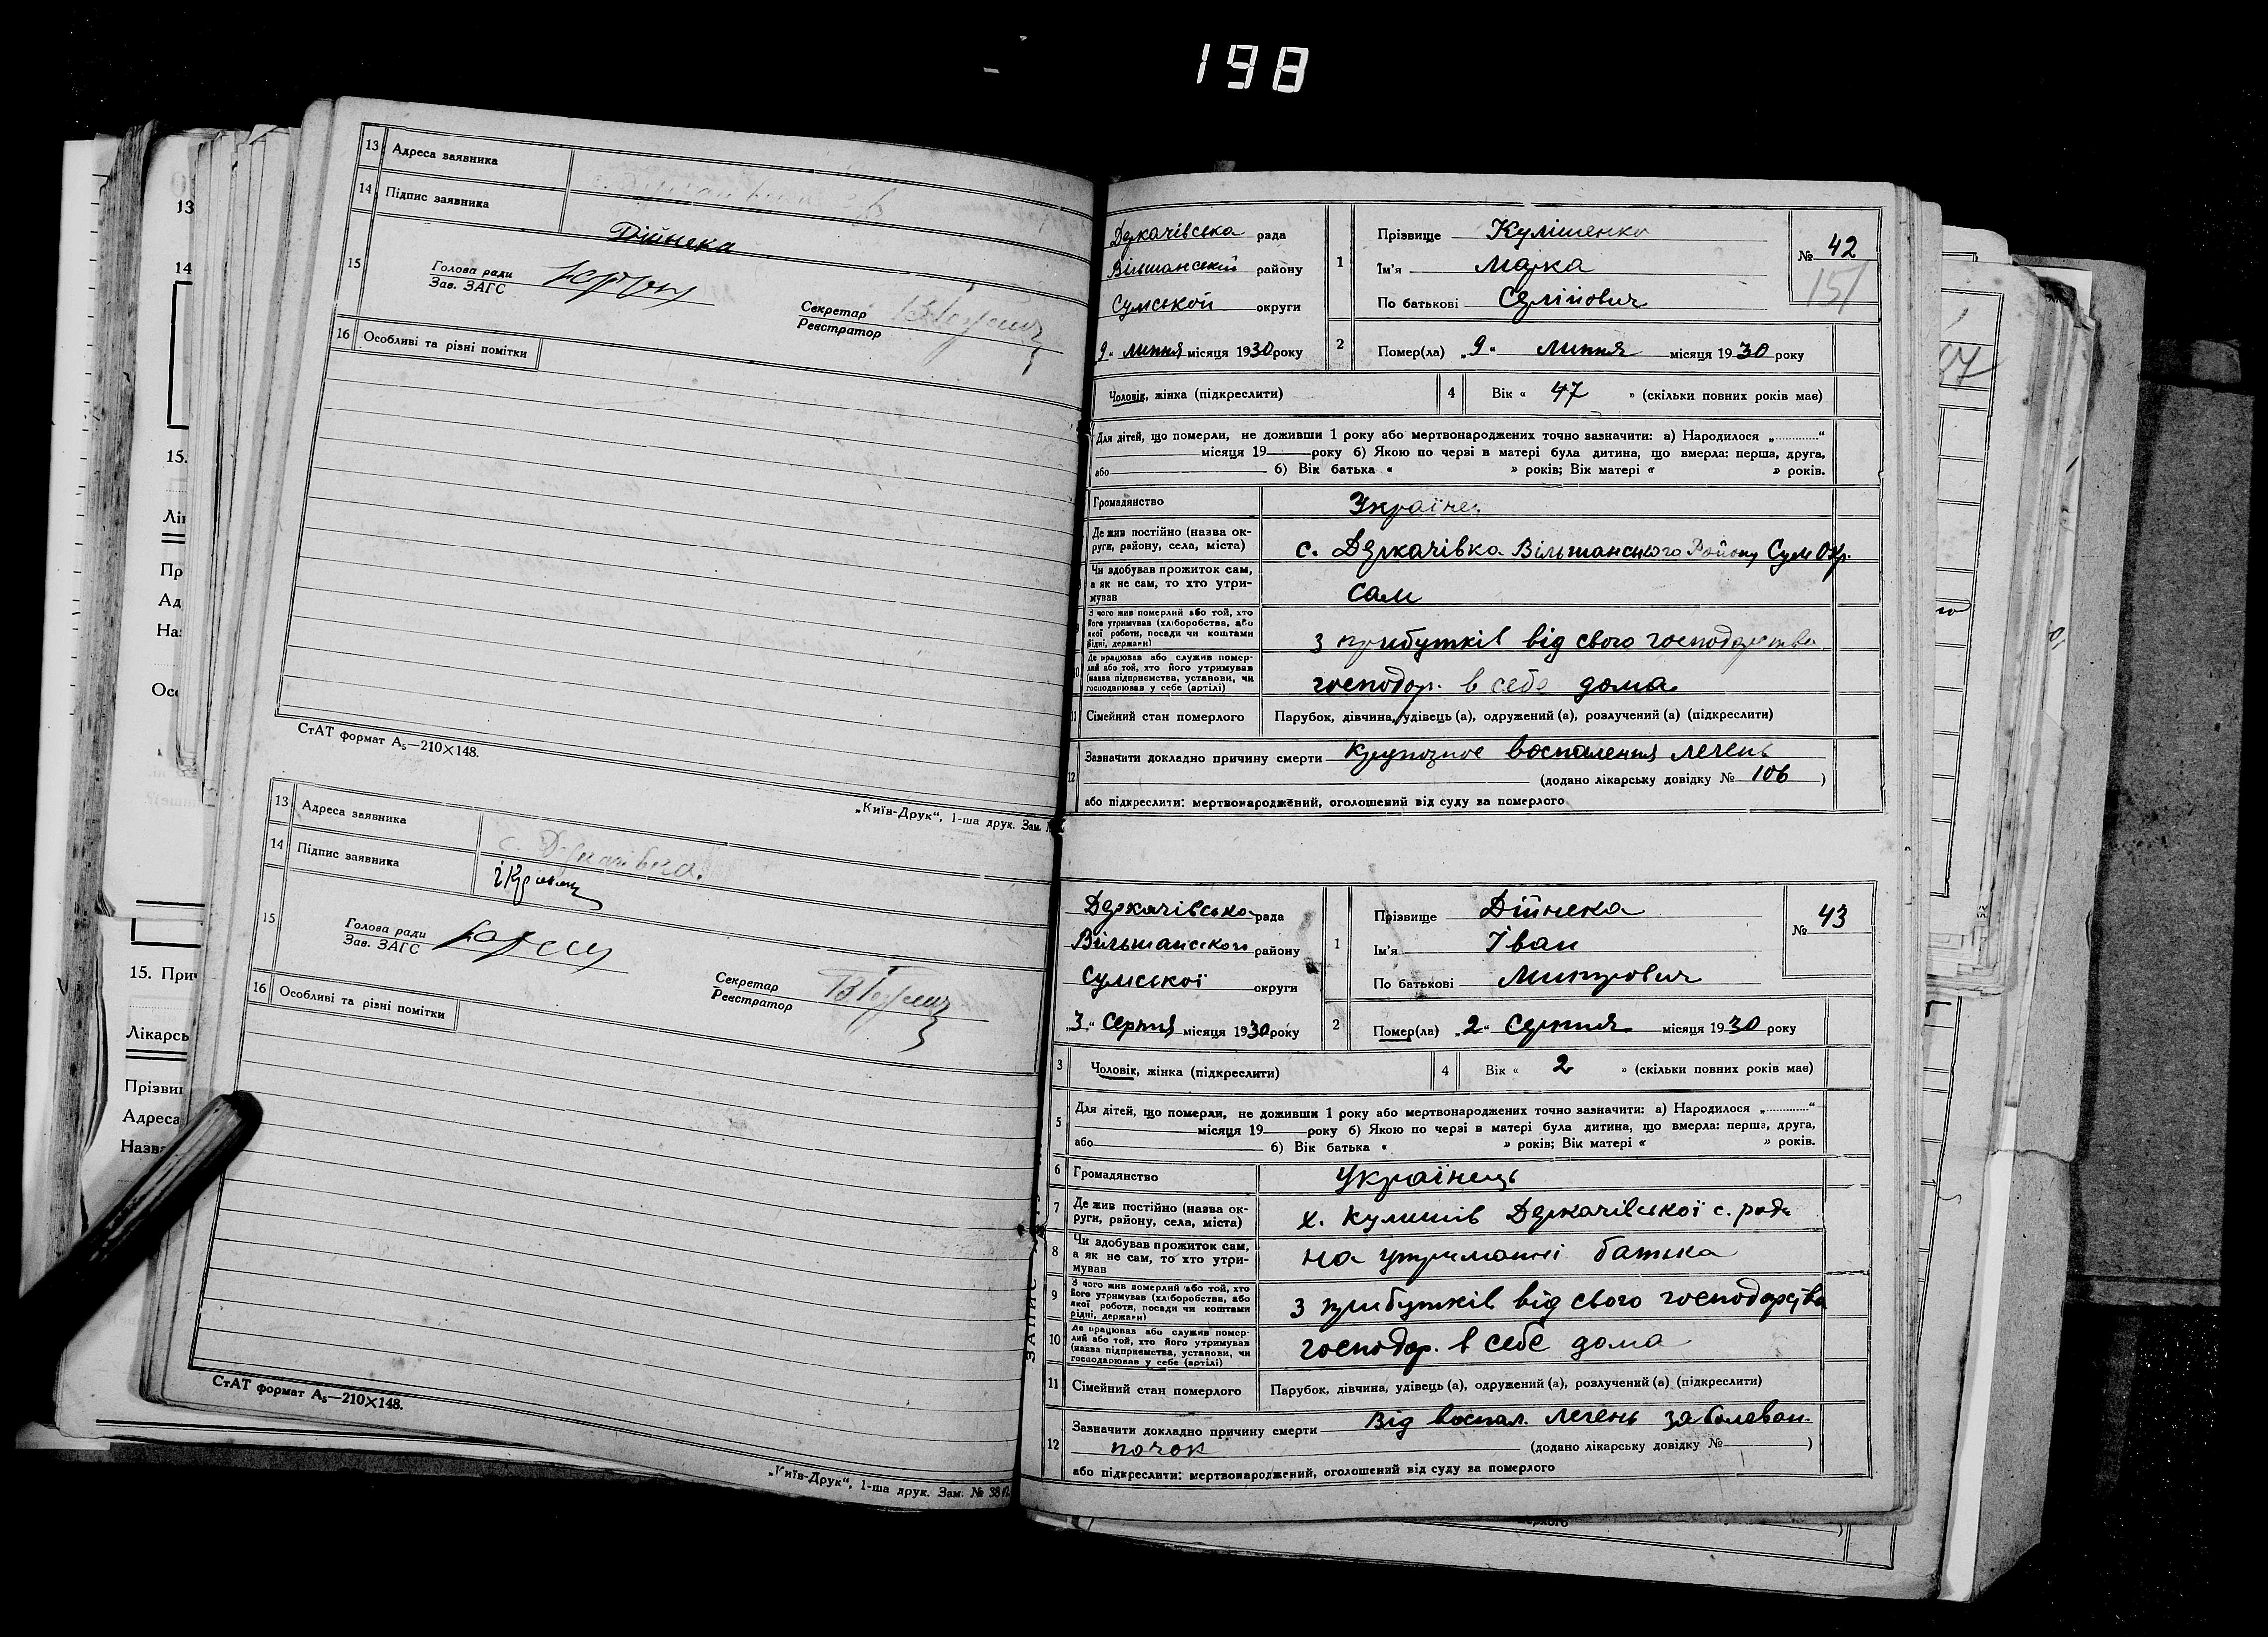 198
13 Адреса заявника
14 Підпис заявника Дійнека
15 Голова ради
Зав. ЗАГС
Секретар
Реєстратор
16 Особливі та різні помітки
СтАТ формат А₅—210×148.
„Київ-Друк“, 1-ша друк. Зам.
13 Адреса заявника с. Деркачівка.
14 Підпис заявника
15 Голова ради
Зав. ЗАГС
Секретар
Реєстратор
16 Особливі та різні помітки
СтАТ формат А₅—210×148.
„Київ-Друк“, 1-ша друк. Зам. № 3817.
Деркачівська рада
Вільшанський району
Сумської округи
9 липня місяця 1930 року
1 Прізвище Кулішенко
Ім'я Марка
По батькові
№ 42
151
2 Помер(ла) „9“ липня місяця 1930 року
Чоловік, жінка (підкреслити)
4 Вік « 47 » (скільки повних років має)
Для дітей, що померли, не доживши 1 року або мертвонароджених точно зазначити: а) Народилося „............“
місяця 19 року б) Якою по черзі в матері була дитина, що вмерла: перша, друга,
або б) Вік батька « » років; Вік матері « » років.
Громадянство Українец
Де жив постійно (назва ок-
руги, району, села, міста) с. Деркачівка Вільшанського Району Сум Окр.
Чи здобував прожиток сам,
а як не сам, то хто утри-
мував сам
З чого жив померлий або той, хто
його утримував (хліборобства, або
якої роботи, посади чи коштами
рідні, держави) з прибутків від свого господарства
10 Де працював або служив помер-
лий або той, хто його утримував
(назва підприємства, установи, чи
господарював у себе (артілі) господар. в себе дома
11 Сімейний стан померлого Парубок, дівчина, удівець (а), одружений (а), розлучений (а) (підкреслити)
12 Зазначити докладно причину смерти Крупозное воспалення легень
(додано лікарську довідку № 106 )
або підкреслити: мертвонароджений, оголошений від суду за померлого
ЗАПИС
Деркачівська рада
Вільшанського району
Сумської округи
„3“ Серпня місяця 1930 року
1 Прізвище Дійнека
Ім'я Іван
По батькові Митрович
№ 43
2 Помер(ла) „2“ Серпня місяця 1930 року
3 Чоловік, жінка (підкреслити)
4 Вік « 2 » (скільки повних років має)
5 Для дітей, що померли, не доживши 1 року або мертвонароджених точно зазначити: а) Народилося „............“
місяця 19 року б) Якою по черзі в матері була дитина, що вмерла: перша, друга,
або б) Вік батька « » років; Вік матері « » років.
6 Громадянство Українець
7 Де жив постійно (назва ок-
руги, району, села, міста) х. Кулишів Деркачівської с. ради
8 Чи здобував прожиток сам,
а як не сам, то хто утри-
мував на утриманні батька
9 З чого жив померлий або той, хто
його утримував (хліборобства, або
якої роботи, посади чи коштами
рідні, держави) з прибутків від свого господарства
10 Де працював або служив помер-
лий або той, хто його утримував
(назва підприємства, установи, чи
господарював у себе (артілі) господар. в себе дома
11 Сімейний стан померлого Парубок, дівчина, удівець (а), одружений (а), розлучений (а) (підкреслити)
12 Зазначити докладно причину смерти Від воспал. легень заболеван.
почок (додано лікарську довідку № )
або підкреслити: мертвонароджений, оголошений від суду за померлого